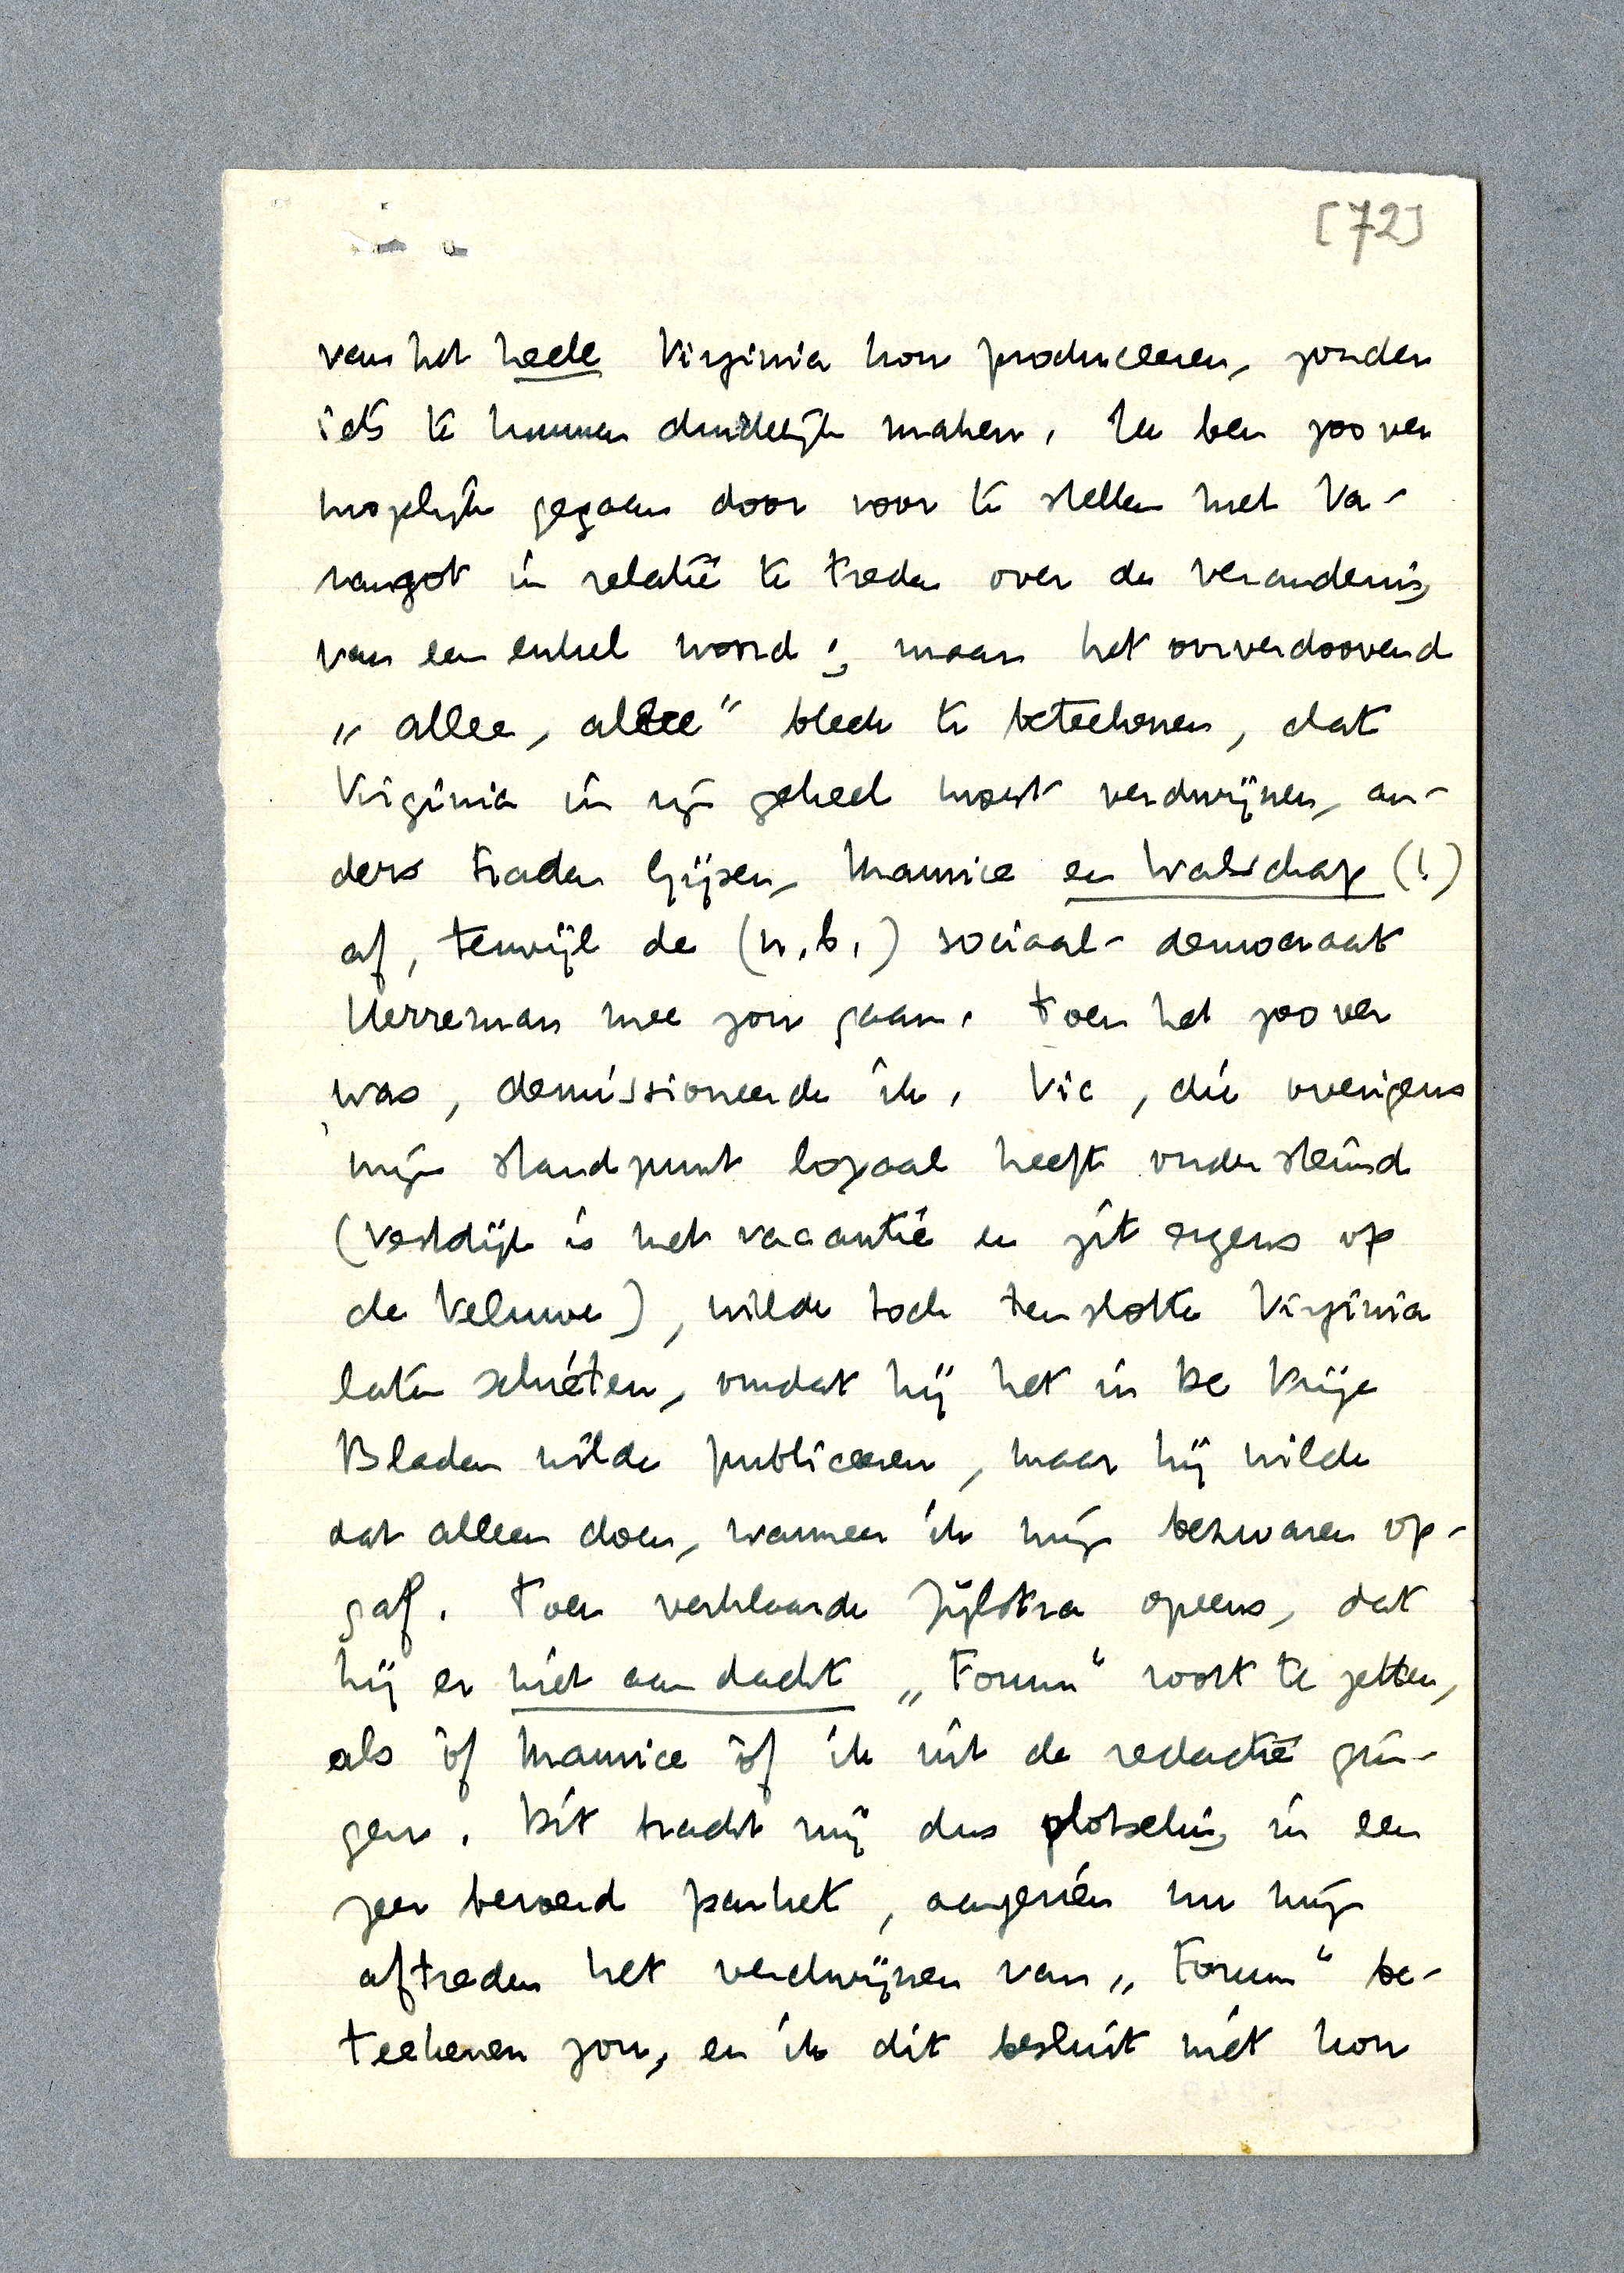 [72]
van het heele Virginia kon produceeren, zonder
iets te kunnen duidelijk maken. Ik ben zoo ver
mogelijk gegaan door voor te stellen met Va-
rangot in relatie te treden over de verandering
van een enkel woord; maar het oorverdoovend
„allee, allee" bleek te beteekenen, dat
Virginia in zijn geheel moest verdwijnen, an-
ders traden Gijsen, Maurice en Walschap (!)
af, terwijl de (n.b.) sociaal-democraat
Herreman mee zou gaan. Toen het zoo ver
was, demissioneerde ik. Vic, die overigens
mijn standpunt loyaal heeft ondersteund
(Vestdijk is met vacantie en zit ergens op
de Veluwe), wilde toch tenslotte Virginia
laten schieten, omdat hij het in De Vrije
Bladen wilde publiceeren, maar hij wilde
dat alleen doen, wanneer ik mijn bezwaren op-
gaf. Toen verklaarde Zijlstra opeens, dat
hij er niet aan dacht „Forum" voort te zetten,
als òf Maurice òf ik uit de redactie gin-
gen. Dit bracht mij dus plotseling in een
zeer beroerd parket, aangezien nu mijn
aftreden het verdwijnen van „Forum" be-
teekenen zou, en ik dit besluit niet kon